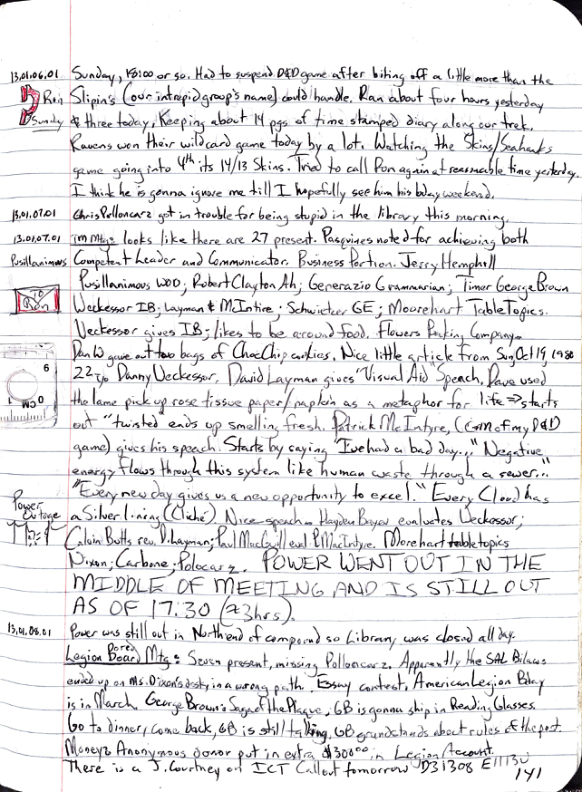 13.01.06.01 Sunday, 18:00 or so. Had to suspend D&D game after biting off a little more than the
Ron Slipin's (our intrepid group's name) could handle. Ran about four hours yesterday
Sunday & three today, Keeping about 14 pgs of time stamped diary along our trek.
Ravens won their wildcard game today by a lot. Watching the Skins/Seahawks
game going into 4th its 14/13 Skins. Tried to call Ron again at reasonable time yesterday.
I think he is gonna ignore me till I hopefully see him his bday weekend.
13.01.07.01 Chris Polloncarz got in trouble for being stupid in the library this morning.
13.01.07.01 TM Mtg: looks like there are 27 present. Pasquines noted for achieving both
Pusillanimous Competent Leader and Communicator. Business Portion. Jerry Hemphill
Pusillanimous WOD; Robert Clayton Ah; Generazio Grammarian; Timer George Brown
TO Ron Weckessor IB; Layman & McIntire; Schwietzer GE; Moorehart Table Topics.
Weckessor gives IB; likes to be around food. Flowers Baking Company.
Dan W gave out two bags of Choc Chip cookies. Nice little article from Sun Oct 19, 1980
22 y/o Danny Weckessor. David Layman gives "Visual Aid" Speech. Dave used
6
the lame pick up rose tissue paper/napkin as a metaphor for life ⇒ starts
1 CM 0
out "twisted ends up smelling fresh. Patrick McIntyre, (Com of my D&D
game) gives his speech. Starts by saying "I've had a bad day..." "Negative
energy flows through this system like human waste through a sewer..."
"Every new day gives us a new opportunity to excel." Every Cloud has
Power Outage a Silver lining (Cliché) Nice speech. Hayden Boyer evaluates Weckessor;
Calvin Butts rev. D. Layman; Paul MacGuill eval P. McIntyre. Morehart table topics
Nixon; Carbone; Polocarz. POWER WENT OUT IN THE
MIDDLE OF MEETING AND IS STILL OUT
AS OF 17:30 (≈3hrs).
13.01.08.01 Power was still out in North end of compound so Library was closed all day.
Legion Board Mtg: Seven present, missing Polloncarz. Apparently the SAL Bilaws
ended up on Ms. Dixon's desk, in a wrong path. Essay contest, American Legion Bday
is in March. George Brown's Saga of the Plaque, GB is gonna ship in Reading Glasses.
Go to dinner, come back, GB is still talking. GB grandstands about rules of the post.
Money: Anonymous donor put in extra $300.00 in Legion Account.
There is a J. Courtney on ICT Callout tomorrow D31308 E11130
141